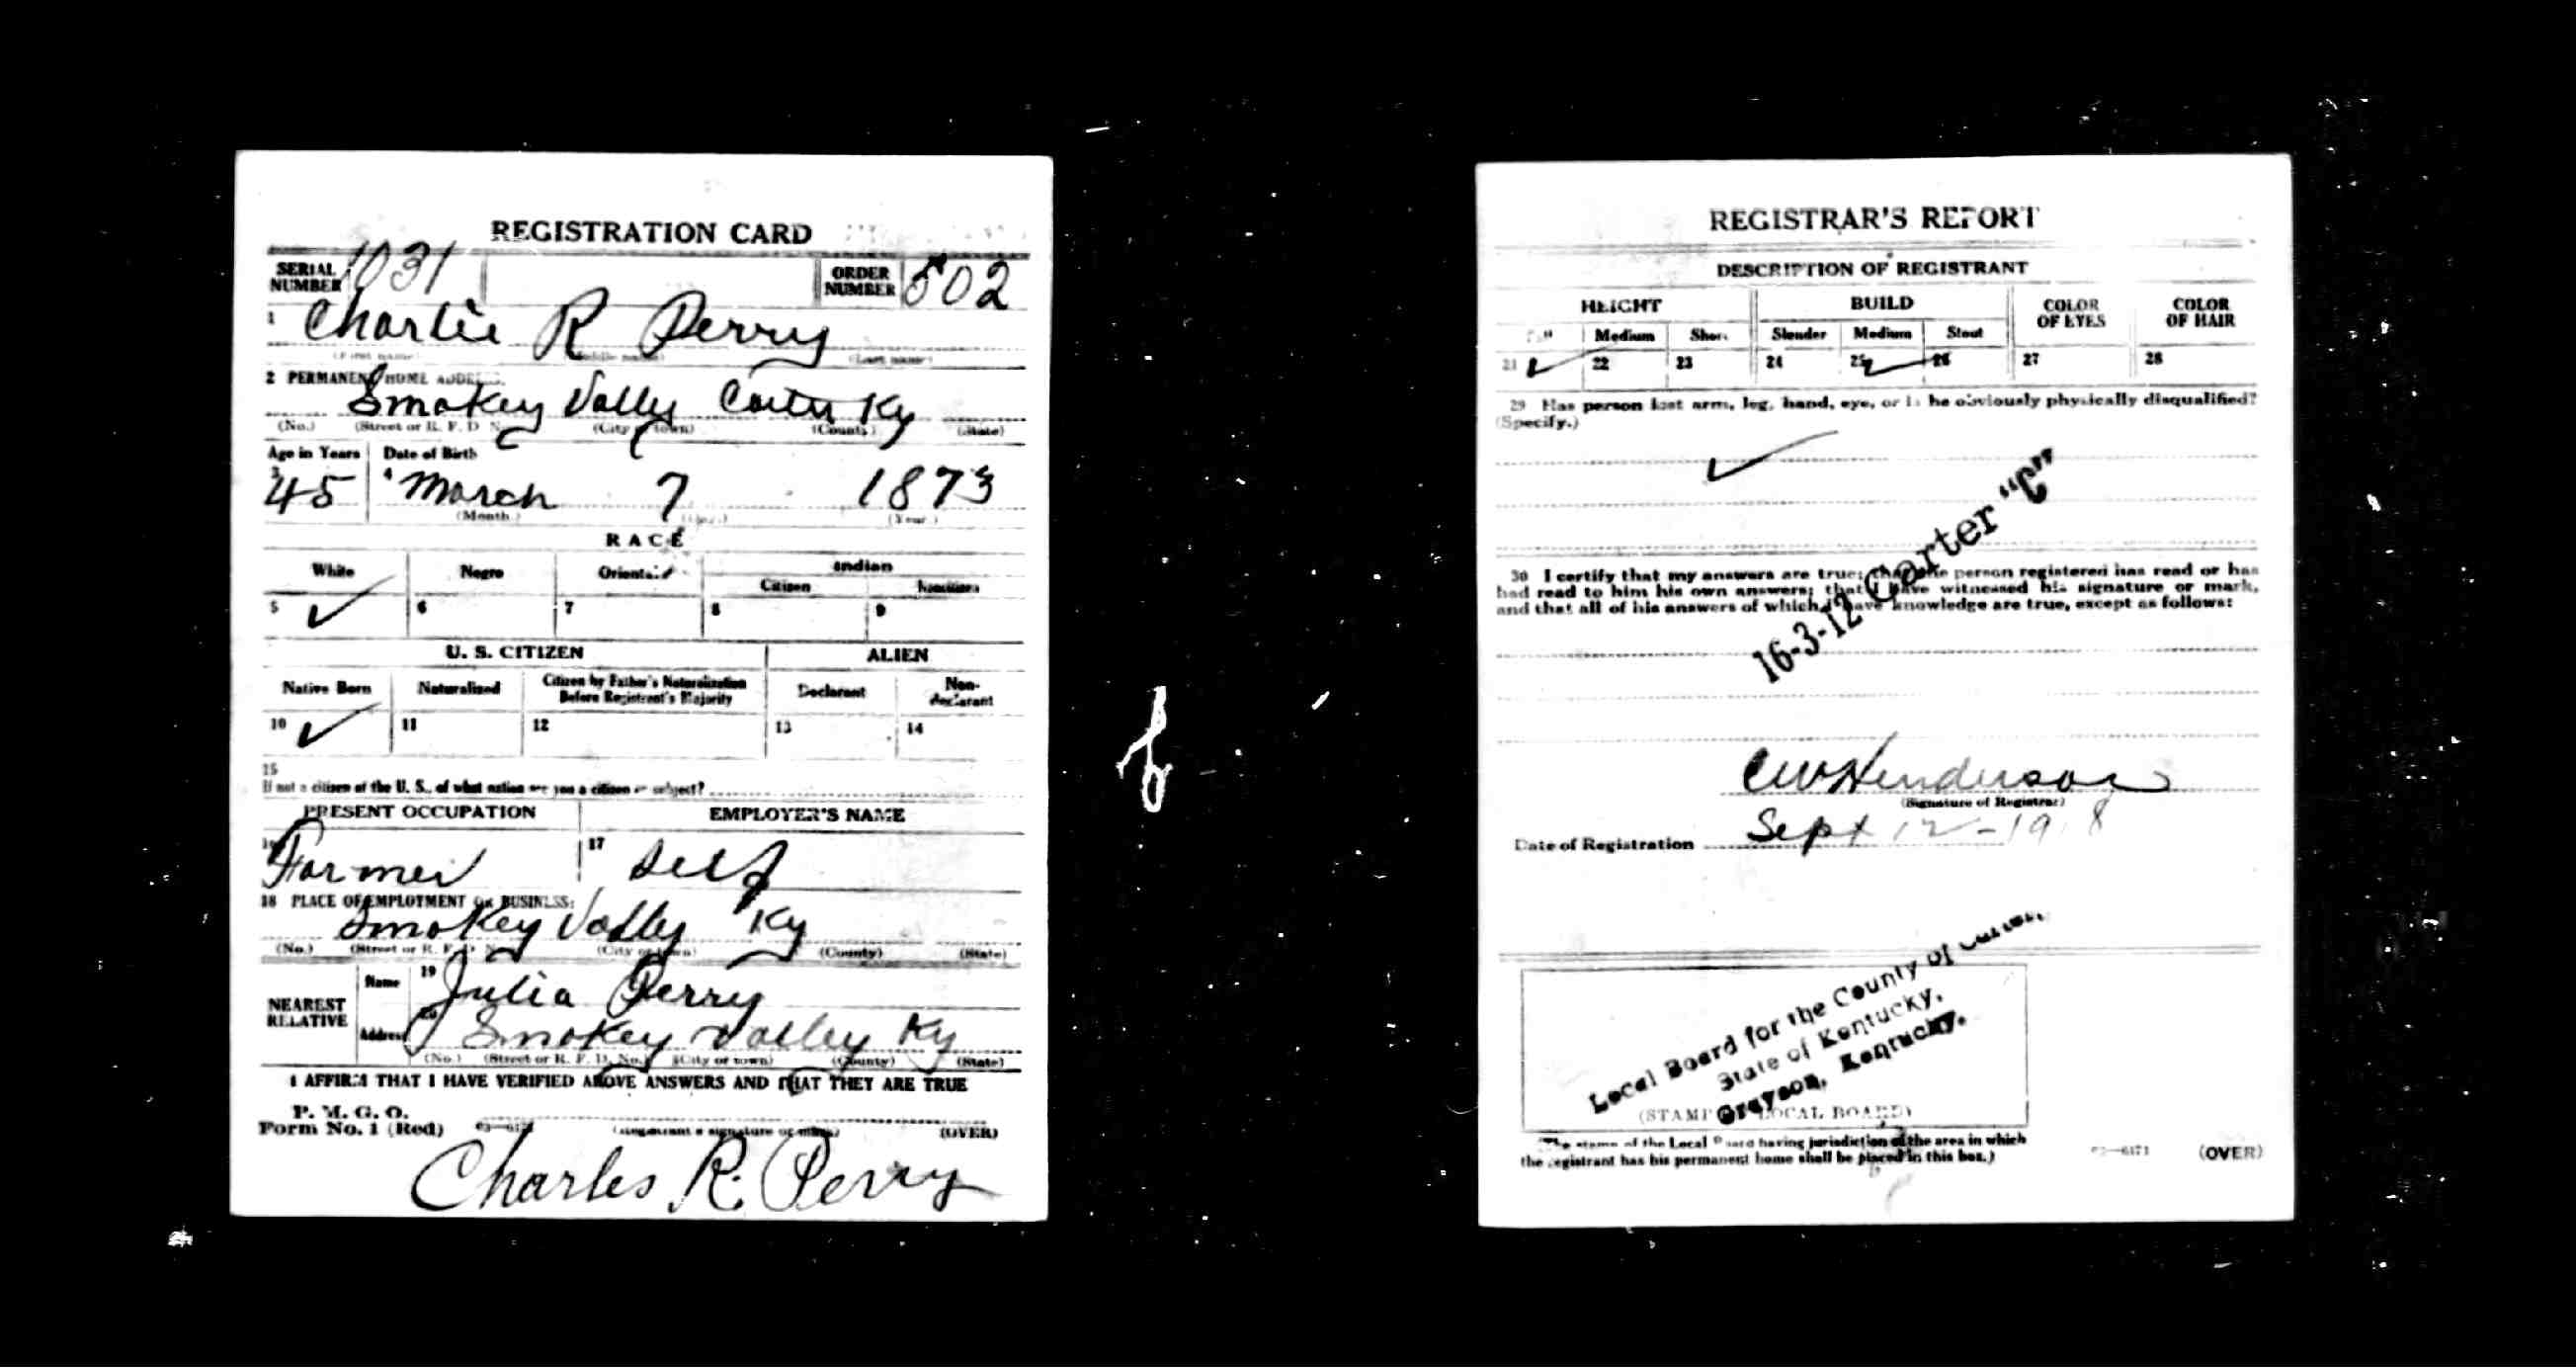 REGISTRATION CARD
SERIAL NUMBER 1031 ORDER NUMBER 502
1 Charlie R Perry
(First name) (Middle name) (Last name)
2 PERMANENT HOME ADDRESS:
Smokey Vally Carter Ky
(No.) (Street or R. F. D. No.) (City or town) (County) (State)
Age in Years Date of Birth
3 45 4 March 7 1873
(Month.) (Day.) (Year.)
RACE
White Negro Oriental Indian
Citizen Noncitizen
5 ✓ 6 7 8 9
U. S. CITIZEN ALIEN
Native Born Naturalized Citizen by Father's Naturalization Before Registrant's Majority Declarant Non-declarant
10 ✓ 11 12 13 14
15
If not a citizen of the U. S., of what nation are you a citizen or subject?
PRESENT OCCUPATION EMPLOYER'S NAME
16 Farmer 17 Self
18 PLACE OF EMPLOYMENT OR BUSINESS:
Smokey Vally Ky
(No.) (Street or R. F. D. No.) (City or town) (County) (State)
NEAREST RELATIVE
Name 19 Julia Perry
Address 20 Smokey Valley Ky
(No.) (Street or R. F. D. No.) (City or town) (County) (State)
I AFFIRM THAT I HAVE VERIFIED ABOVE ANSWERS AND THAT THEY ARE TRUE
P. M. G. O.
Form No. 1 (Red) (Registrant's signature or mark) (OVER)
Charles R. Perry
REGISTRAR'S REPORT
DESCRIPTION OF REGISTRANT
HEIGHT BUILD COLOR OF EYES COLOR OF HAIR
Tall Medium Short Slender Medium Stout
21 ✓ 22 23 24 25 ✓ 26 27 28
29 Has person lost arm, leg, hand, eye, or is he obviously physically disqualified?
(Specify.)
✓
30 I certify that my answers are true; that the person registered has read or has
had read to him his own answers; that I have witnessed his signature or mark,
and that all of his answers of which I have knowledge are true, except as follows:
16-3-12 Carter "C"
CW Henderson
(Signature of Registrar)
Date of Registration Sept 12-1918
Local Board for the County of Carter,
State of Kentucky,
Grayson, Kentucky.
(STAMP OF LOCAL BOARD)
(The stamp of the Local Board having jurisdiction of the area in which
the registrant has his permanent home shall be placed in this box.)
03—6171 (OVER)